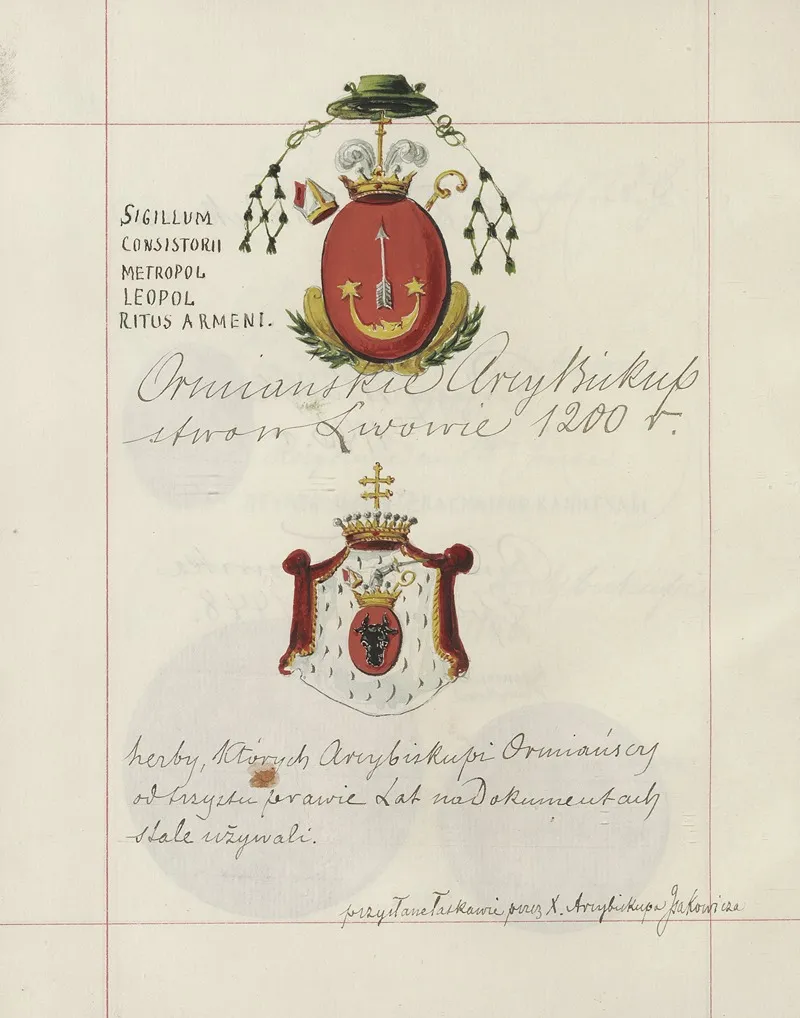 SIGILLUM
CONSISTORII
METROPOL
LEOPOL
RITUS ARMENI.
Ormiańskie Arcybiskup
stwo w Lwowie 1200 r.
herby, których Arcybiskupi Ormiańscy
od trzystu prawie Lat na Dokumentach
stale używali.
przysłane łaskawie przez X. Arcybiskupa Isakowicza